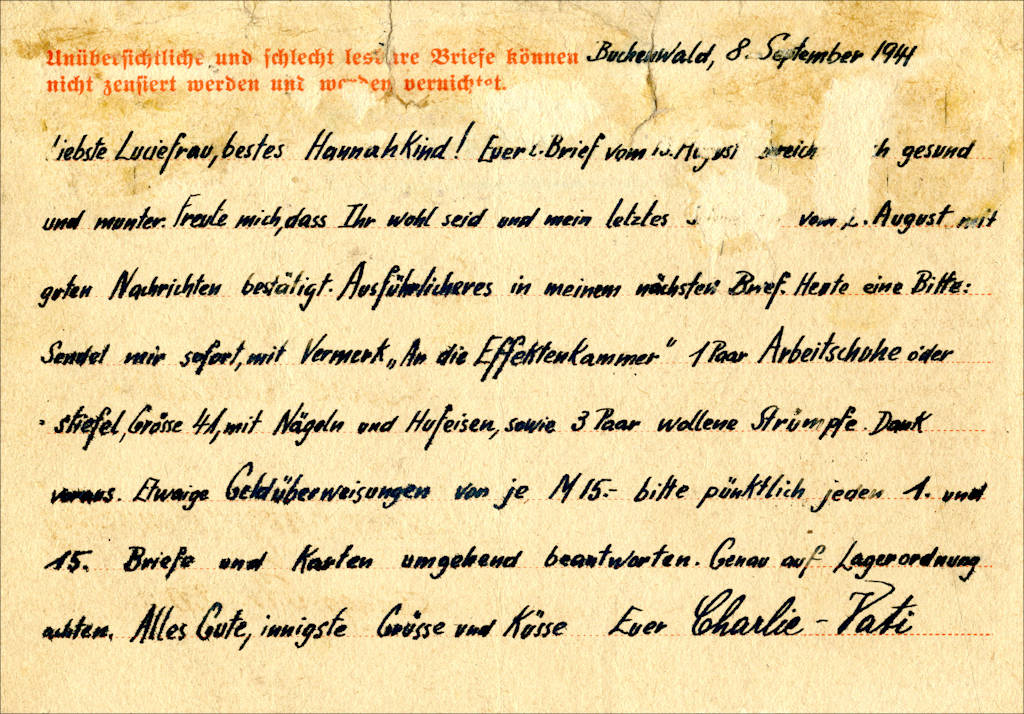 Unübersichtliche und schlecht lesbare Briefe können
nicht zensiert werden und werden vernichtet.
Buchenwald, 8. September 1941
liebste Luciefrau, bestes Hannahkind! Euer Brief vom August gesund
und munter. Freute mich, dass Ihr wohl seid und mein letztes vom August mit
guten Nachrichten bestätigt. Ausführlicheres in meinem nächsten Brief. Heute eine Bitte:
Sendet mir sofort, mit Vermerk „An die Effektenkammer" 1 Paar Arbeitschuhe oder
-stiefel, Grösse 41, mit Nägeln und Hufeisen, sowie 3 Paar wollene Strümpfe. Dank
voraus. Etwaige Geldüberweisungen von je M 15.- bitte pünktlich jeden 1. und
15. Briefe und Karten umgehend beantworten. Genau auf Lagerordnung
achten. Alles Gute, innigste Grüsse und Küsse Euer Charlie-Vati